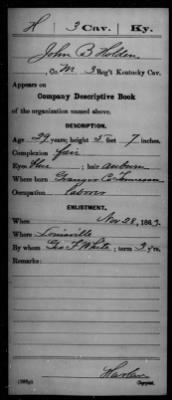 H | 3 Cav. | Ky.
John B Holden
, Co. M, 3 Reg't Kentucky Cav.
Appears on
Company Descriptive Book
of the organization named above.
DESCRIPTION.
Age 29 years; height 5 feet 7 inches.
Complexion Fair
Eyes Blue ; hair auburn
Where born Granger Co Tennessee
Occupation Laborer
ENLISTMENT.
When Nov 28, 1863.
Where Louisville
By whom Geo F White ; term 3 y'rs.
Remarks:
Harlan
Copyist.